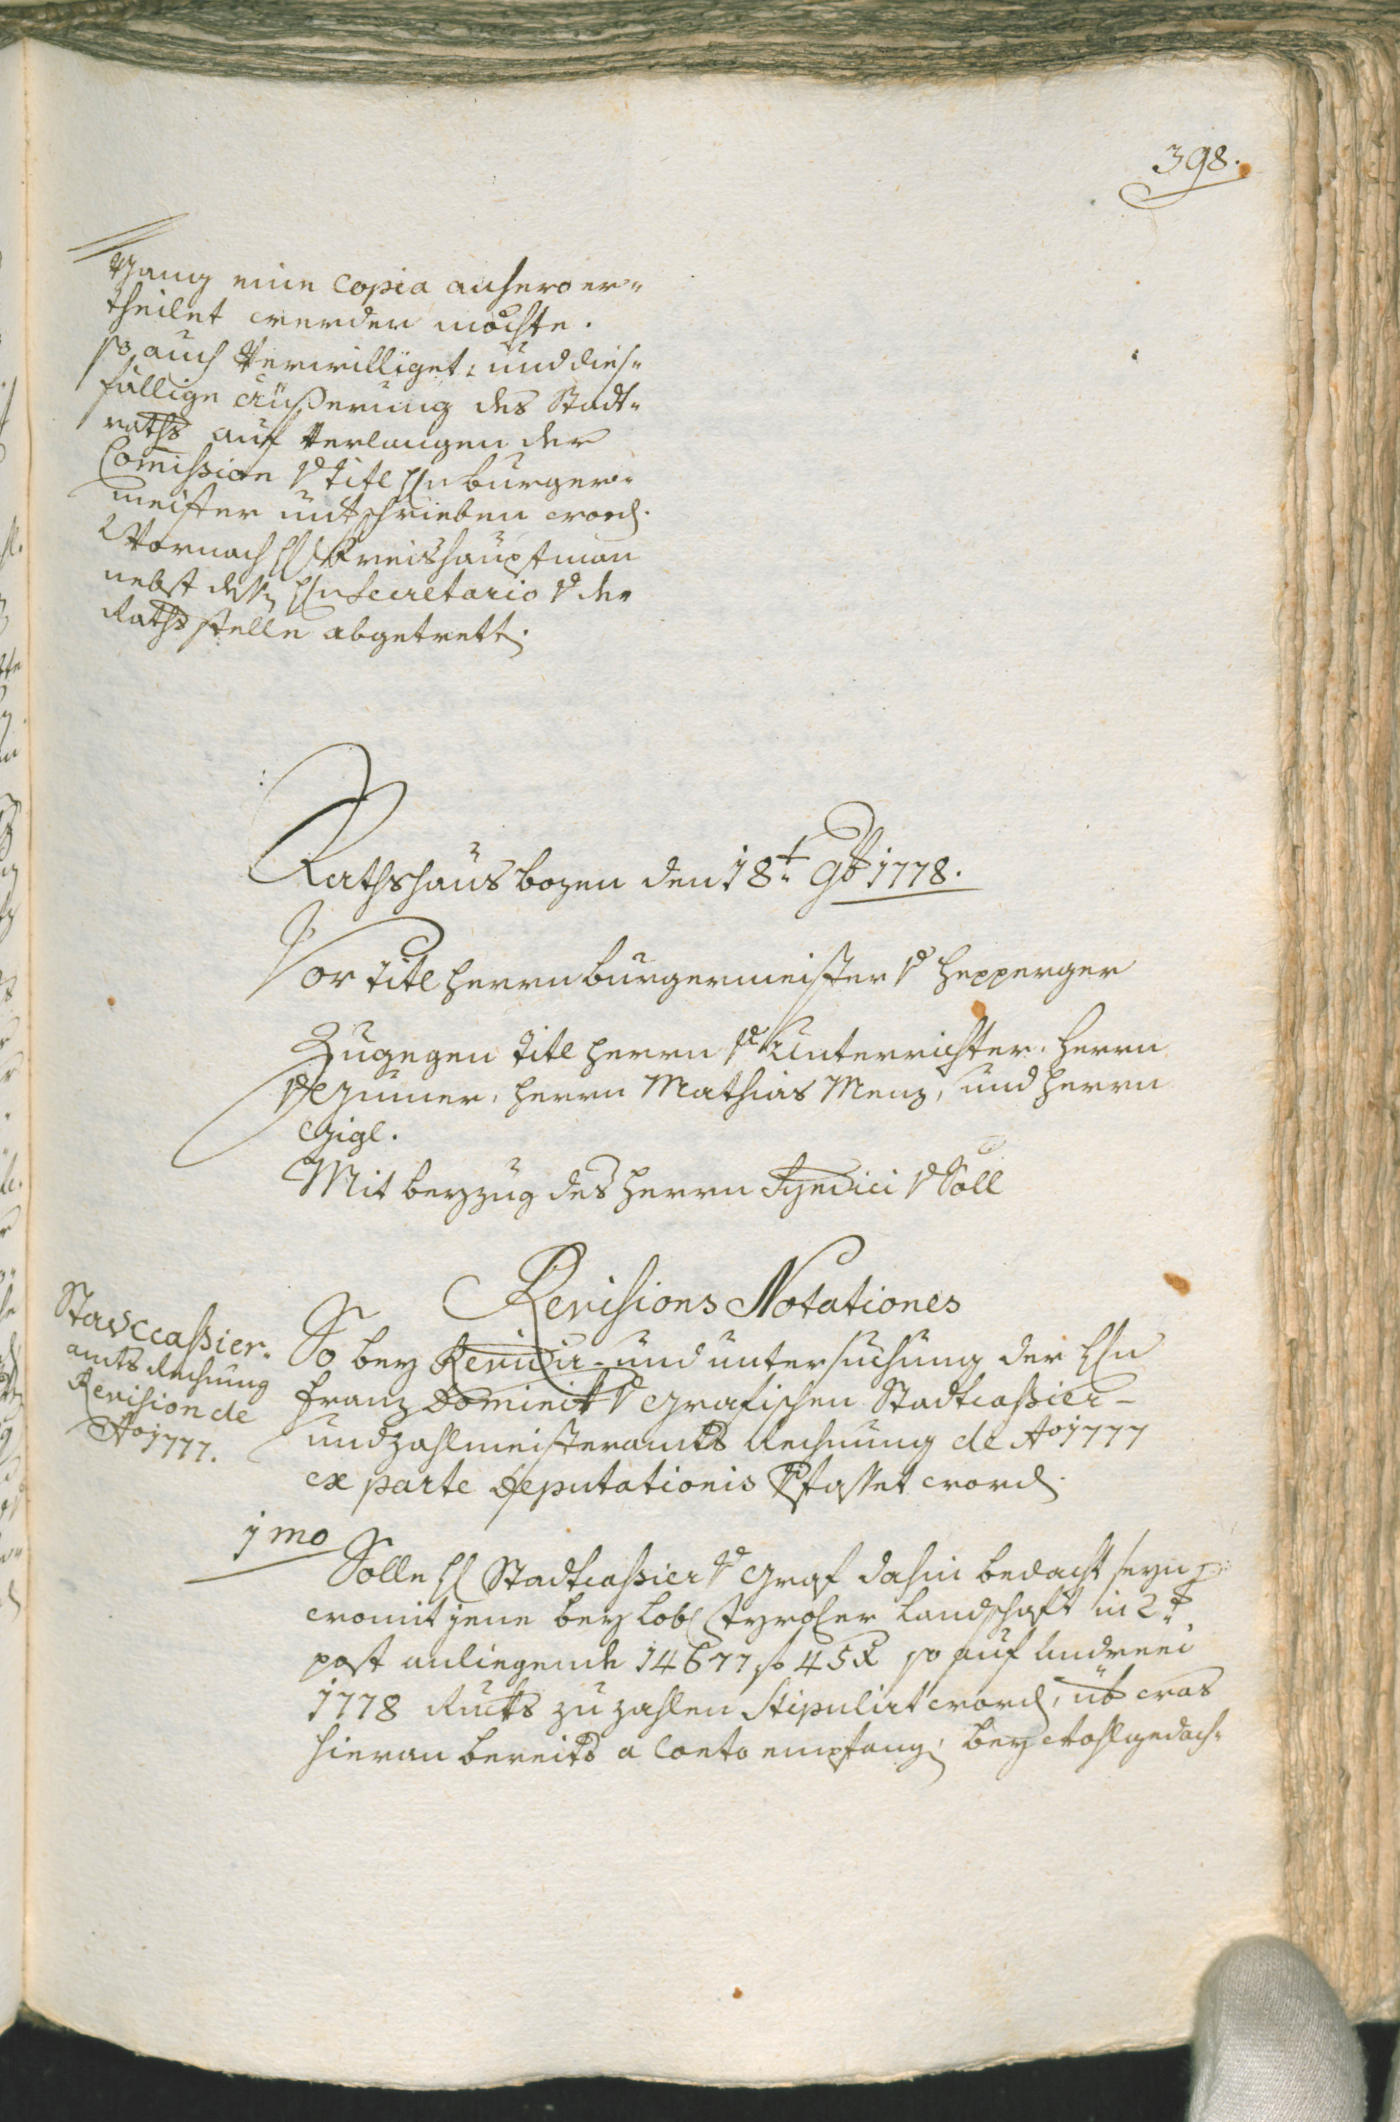 398.
gang eine Copia anhero er¬
theilet werden möchte.
so auch verwilliget: und dies¬
fällige Äüßerung des Stadt¬
raths auf Verlangen der
Commission v Titl Hn burger¬
meister untschrieben word.
Wornach H Kreishauptman
nebst dessen Hn Secretario v der
Rathsstelle abgetrett.
Rathshaus bozen den 18t 9b 1778.
Vor Titl herrn burgermeister v hepperger
Zugegen Titl herrn v Unterrichter. herrn
v Gumer, herrn Mathias Menz, und herrn
Gigl.
Mit beyzug des herrn Syndici v Söll
Revisions Notationes
Stattcaßier¬
amts Rechnung
Revision de
Ao 1777.
So bey Revidir- und untersuchung der Hn
franz Dominik v Grafischen Stadtcaßier-
und zahlmeisteramts Rechnung de Ao 1777
ex parte Deputationis verfasset word.
1mo
Solle H Stadtcaßier v Graf dahin bedacht seyn
womit jene bey lobl Tyroler Landschaft in 2
post anliegende 14677 f 45 x so auf Andreei
1778 Rucks zu zahlen stipulirt word, üb was
hieran bereits a Conto empfang, bey wohlgedach¬